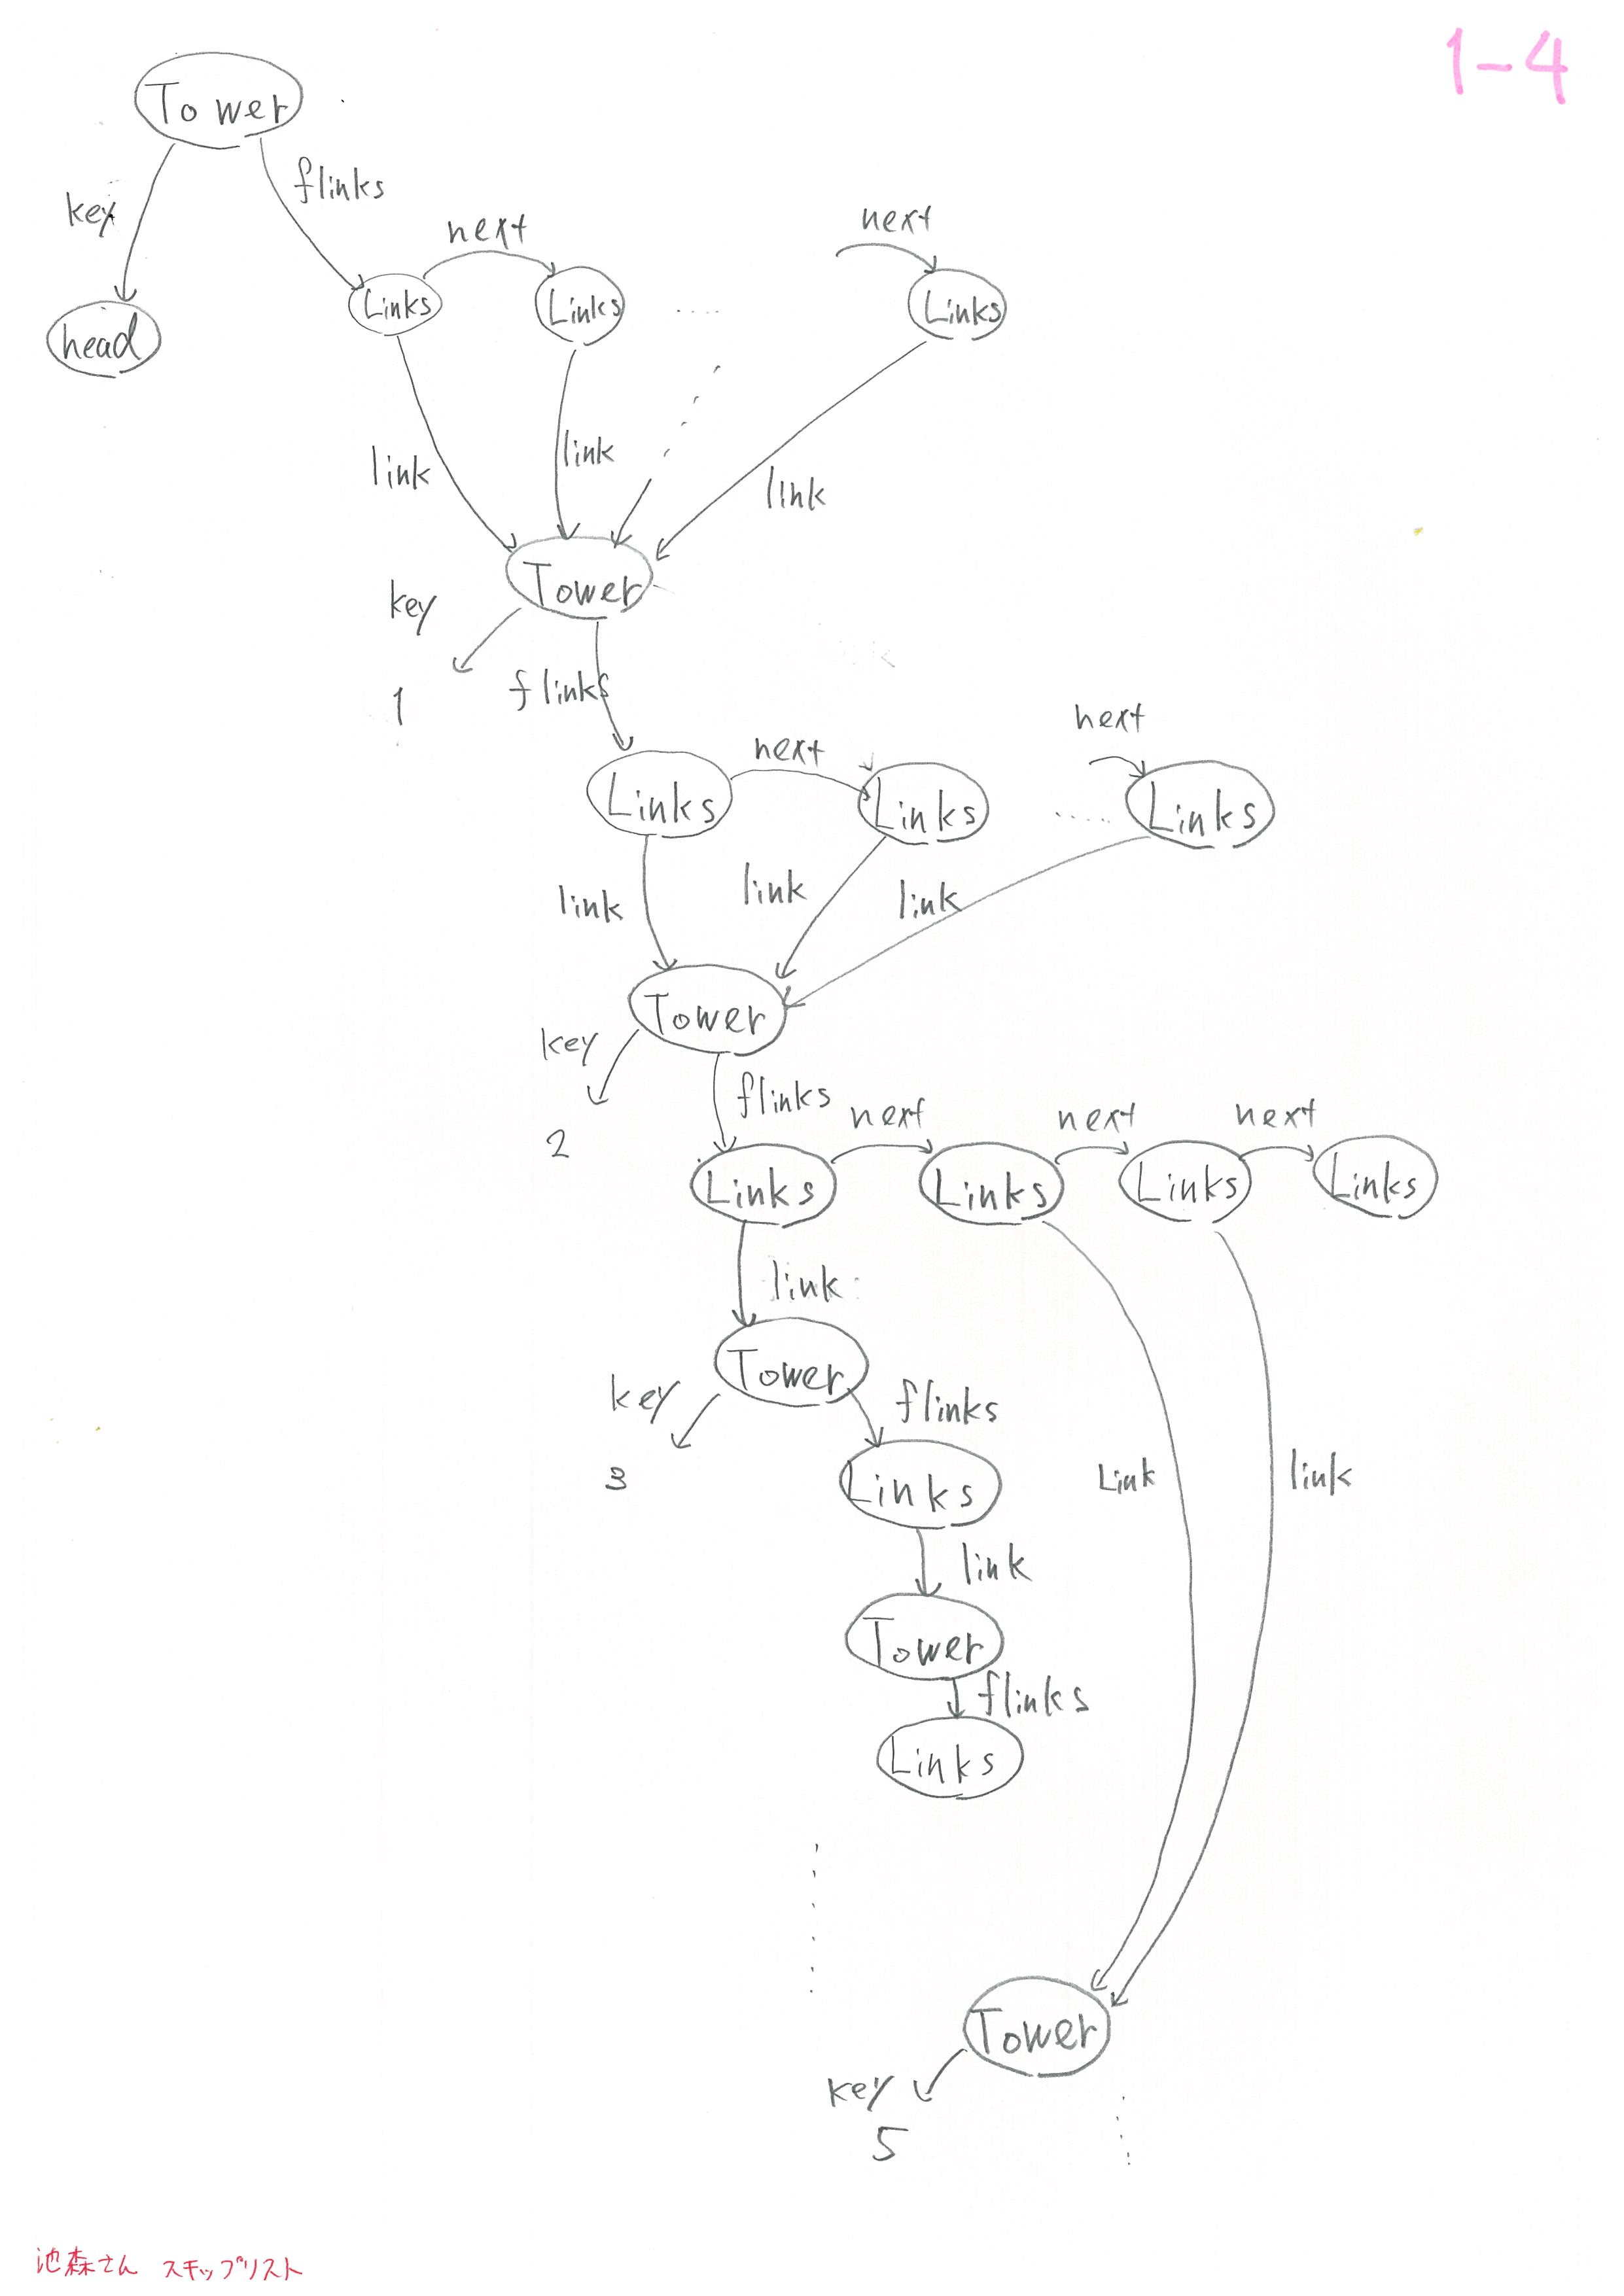 1-4
Tower
key
flinks
next
next
head
Links
Links
Links
link
link
link
Tower
key
1
flinks
next
next
Links
Links
Links
link
link
link
Tower
key
2
flinks
next
next
next
Links
Links
Links
Links
link
Tower
key
3
flinks
Links
Link
link
link
Tower
flinks
Links
Tower
key
5
池森さん スキップリスト